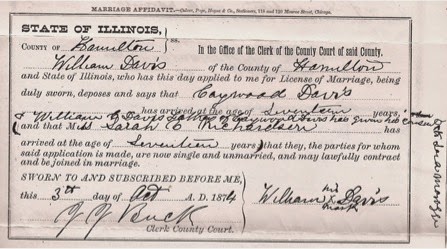 MARRIAGE AFFIDAVIT.—Culver, Page, Hoyne & Co., Stationers, 118 and 120 Monroe Street, Chicago.
STATE OF ILLINOIS, } ss.
COUNTY OF Hamilton In the Office of the Clerk of the County Court of said County.
William Davis of the County of Hamilton
and State of Illinois, who has this day applied to me for License of Marriage, being
duly sworn, deposes and says that Caywood Davis
has arrived at the age of Seventeen years,
& William C Davis Father of Caywood Davis has given his consent
and that Miss Sarah C Richardson has
arrived at the age of Seventeen years, that they, the parties for whom
said application is made, are now single and unmarried, and may lawfully contract
and be joined in marriage.
SWORN TO AND SUBSCRIBED BEFORE ME,
this 3th day of Oct A. D. 1874
William his X mark Davis
J J Buck
Clerk County Court.